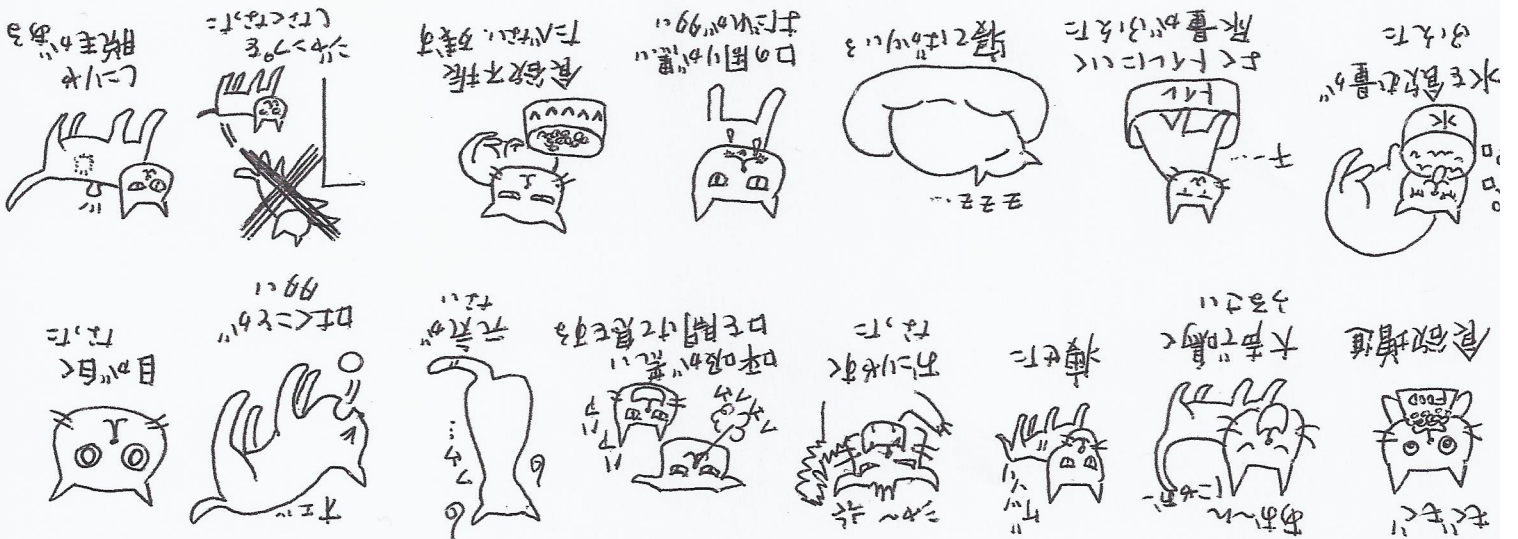 もぐもぐ
FOOD
食欲増進
あお〜ん
にゃお〜
大声で鳴く
うるさい
ゲッソリ
痩せた
シャ〜
おこりやすく
なった
フゥ
フゥ
ハァ
ハァ
呼吸が荒い
口を開けて息をする
フゥ…
元気が
ない
オエッ
吐くことが
多い
目が白く
なった
水
水を飲む量が
ふえた
チー…
トイレ
よくトイレにいく
尿量がふえた
ZZZ…
寝てばかりいる
口の周りが
よだれが多い
食欲不振
たべない、残す
ジャンプを
しなくなった
しこりや
脱毛がある